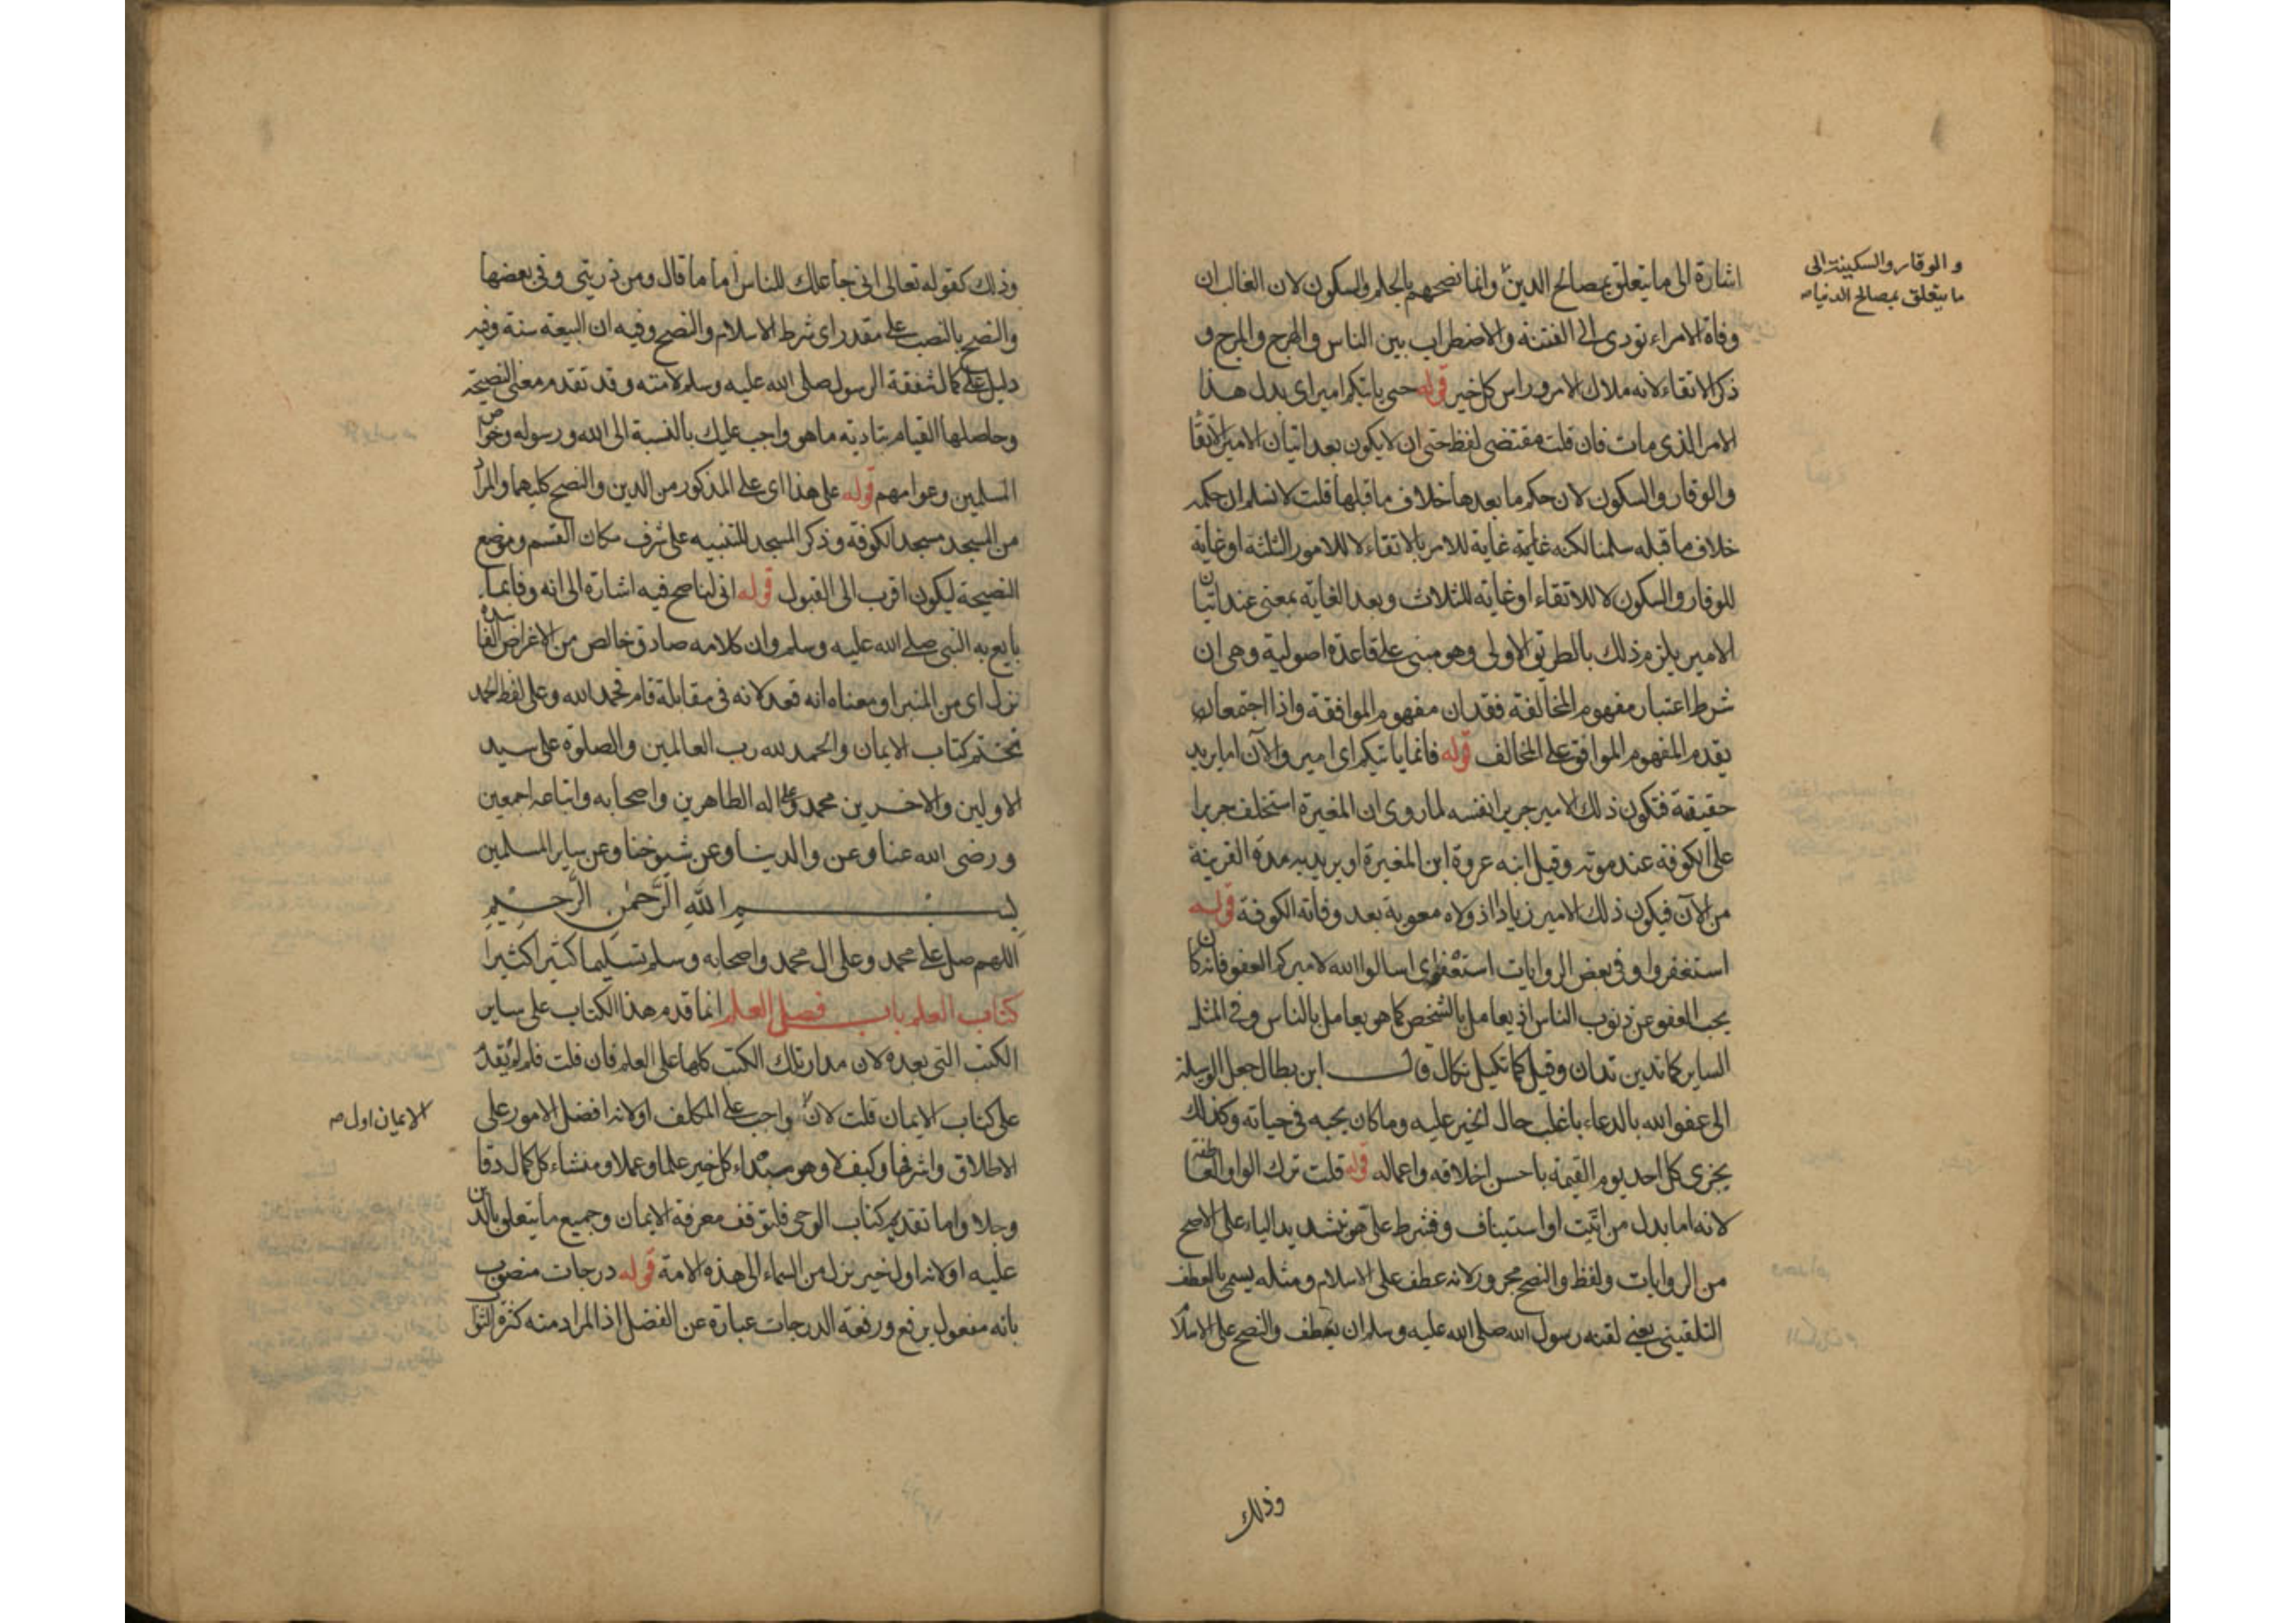 والوقار والسكينة الى
ما يتعلق بمصالح الدنيا صح
اشارة الى ما يتعلق بمصالح الدين وانما نصحهم بالحلم والسكون لان الغالب ان
وفاة الامراء تودى الى الفتنة والاضطراب بين الناس والهرج والمرج و
ذكر الاتقاء لانه ملاك الامر وراس كل خير قوله حتى ياتيكم امير اى بدل هذا
الامير الذى مات فان قلت مقتضى لفظ حتى ان لا يكون بعد اتيان الامير الاتقا
والوقار والسكون لان حكم ما بعدها خلاف ما قبلها قلت لا نسلم ان حكمه
خلاف ما قبله سلمنا لكنه غاية للامر بالاتقاء لا للامور الثلثة او غاية
للوقار والسكون لا للاتقاء او غاية للثلاث وبعد الغاية بمعنى عند اتيان
الامير يلزم ذلك بالطريق الاولى وهو مبنى على قاعدة اصولية وهى ان
شرط اعتبار مفهوم المخالفة فقدان مفهوم الموافقة واذا اجتمعا
يقدم المفهوم الموافق على المخالف قوله فانما ياتيكم اى امير والآن اما يريد
حقيقة فتكون ذلك الامير جريرا نفسه لما روى ان المغيرة استخلف جريرا
على الكوفة عند موته وقيل ابنه عروة ابن المغيرة او يريد به مدة القريبة
من الآن فيكون ذلك الامير زيادا اذ ولاه معوية بعد وفاته الكوفة قوله
استغفروا وفى بعض الروايات استعفوا اى اسالوا الله لاميركم العفو فانه كان
يحب العفو عن ذنوب الناس اذ يعامل بالشخص كما هو يعامل بالناس وفى المثل
الساير كما تدين تدان وقيل كما تكيل تكال قال ابن بطال جعل الوسيلة
الى عفو الله بالدعاء باغلب حال الخير عليه وما كان يحبه فى حياته وكذلك
يجزى كل احد يوم القيمة باحسن اخلاقه واعماله قوله قلت ترك الواو العاطفة
لانه اما بدل من اتيت او استيناف وفشرط على هو بتشديد الياء على الاصح
من الروايات ولفظ والنصح مجرور لانه عطف على الاسلام ومثله يسمى بالعطف
التلقينى يعنى لقنه رسول الله صلى الله عليه وسلم ان يعطف والنصح على الاسلا
وذلك
وذلك كقوله تعالى انى جاعلك للناس اماما قال ومن ذريتى وفى بعضها
والنصح بالنصب على مقدر اى شرط الاسلام والنصح وفيه ان البيعة سنة وفيه
دليل على كمال شفقة الرسول صلى الله عليه وسلم لامته وقد تقدم معنى النصيحة
وحاصلها القيام بتادية ما هو واجب عليك بالنسبة الى الله ورسوله وخواص
المسلمين وعوامهم قوله على هذا اى على المذكور من الدين والنصح كليهما والمراد
من المسجد مسجد الكوفة وذكر المسجد للتنبيه على شرف مكان القسم وموضع
النصيحة ليكون اقرب الى القبول قوله انى لناصح فيه اشارة الى انه وفا بما
بايع به النبى صلى الله عليه وسلم وان كلامه صادق خالص من الاغراض الفاسدة
نزل اى من المنبر او معناه انه قعد لانه فى مقابلة قام فحمد الله وعلى لفظ الحمد
نختتم كتاب الايمان والحمد لله رب العالمين والصلوة على سيد
الاولين والاخرين محمد وعلى اله الطاهرين واصحابه واتباعه اجمعين
ورضى الله عنا وعن والدينا وعن شيوخنا وعن ساير المسلمين
بسم الله الرحمن الرحيم
اللهم صل على محمد وعلى ال محمد واصحابه وسلم تسليما كثيرا كثيرا
كتاب العلم باب فضل العلم انما قدم هذا الكتاب على ساير
الكتب التى بعده لان مدار تلك الكتب كلها على العلم فان قلت فلم لم يقدم
على كتاب الايمان قلت لان واجب على المكلف او لانه افضل الامور على
الايمان اول صح
الاطلاق واشرفها وكيف لا وهو مبتداء كل خير علما وعملا ومنشاء كل كمال دقا
وجلا واما تقديم كتاب الوحى فلتوقف معرفة الايمان وجميع ما يتعلق بالدين
عليه او لانه اول خير نزل من السماء الى هذه الامة قوله درجات منصوب
بانه مفعول يرفع ورفعة الدرجات عبارة عن الفضل اذ المراد منه كثرة الثوا